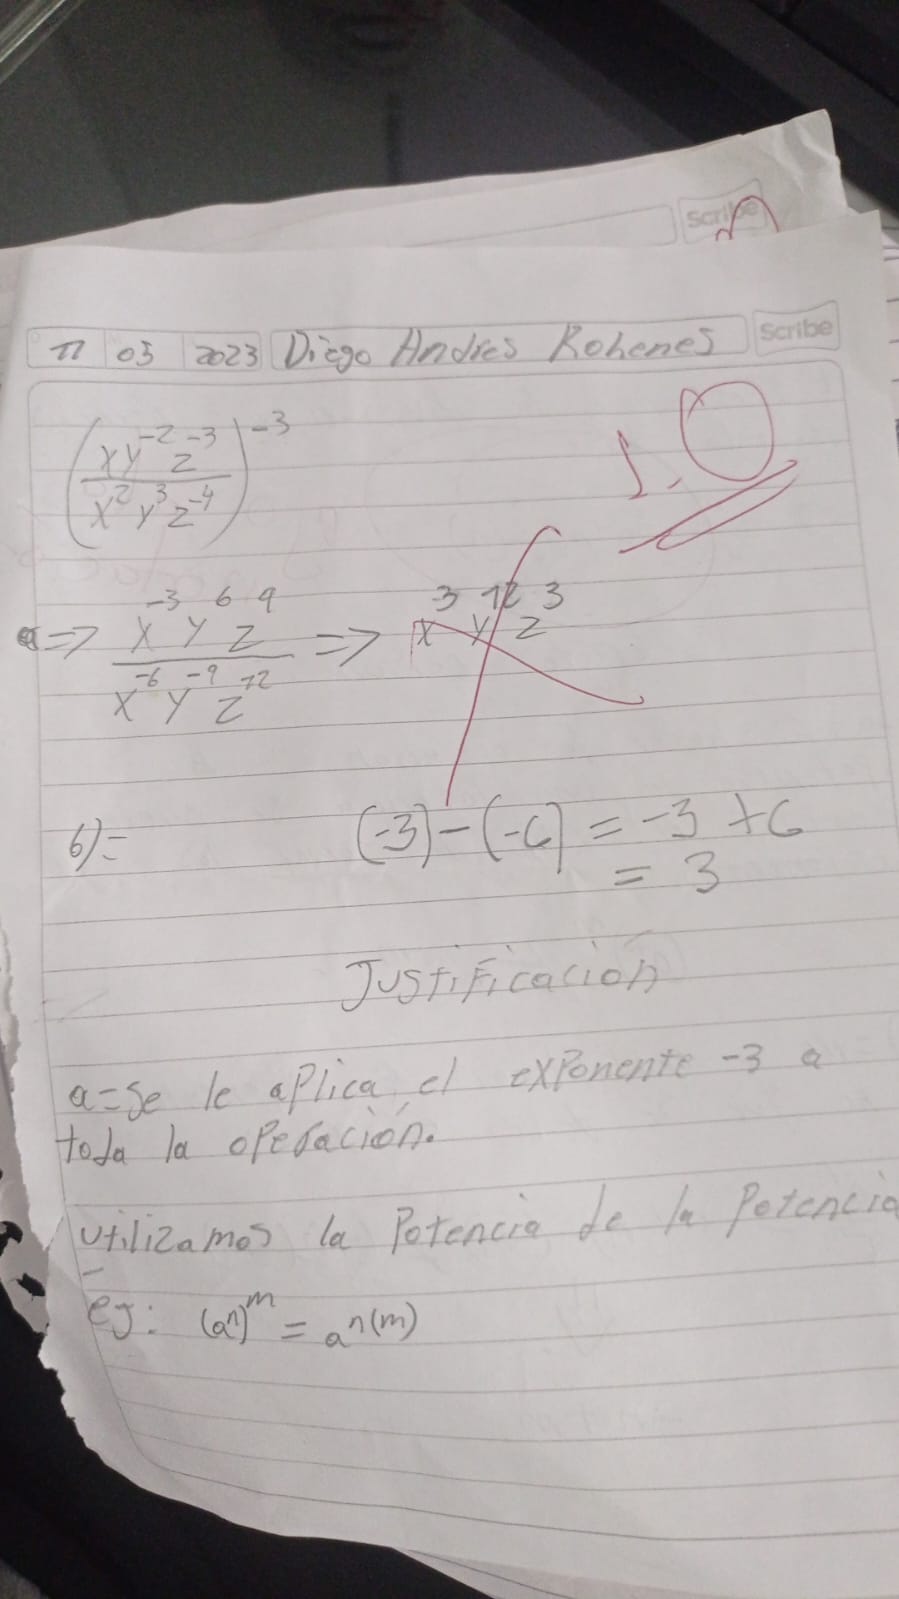 Scribe
11 03 2023 Diego Andres Rohenes Scribe
1.0
(xy^-2 z^-3 / x^2 y^3 z^-4)^-3
=> x^-3 y^6 z^9 / x^-6 y^-9 z^12 => x^3 y^12 z^3
6)= (-3)-(-6) = -3+6
= 3
Justificación
a=se le aplica el exponente -3 a
toda la operación.
utilizamos la Potencia de la Potencia
ej: (a^n)^m = a^n(m)